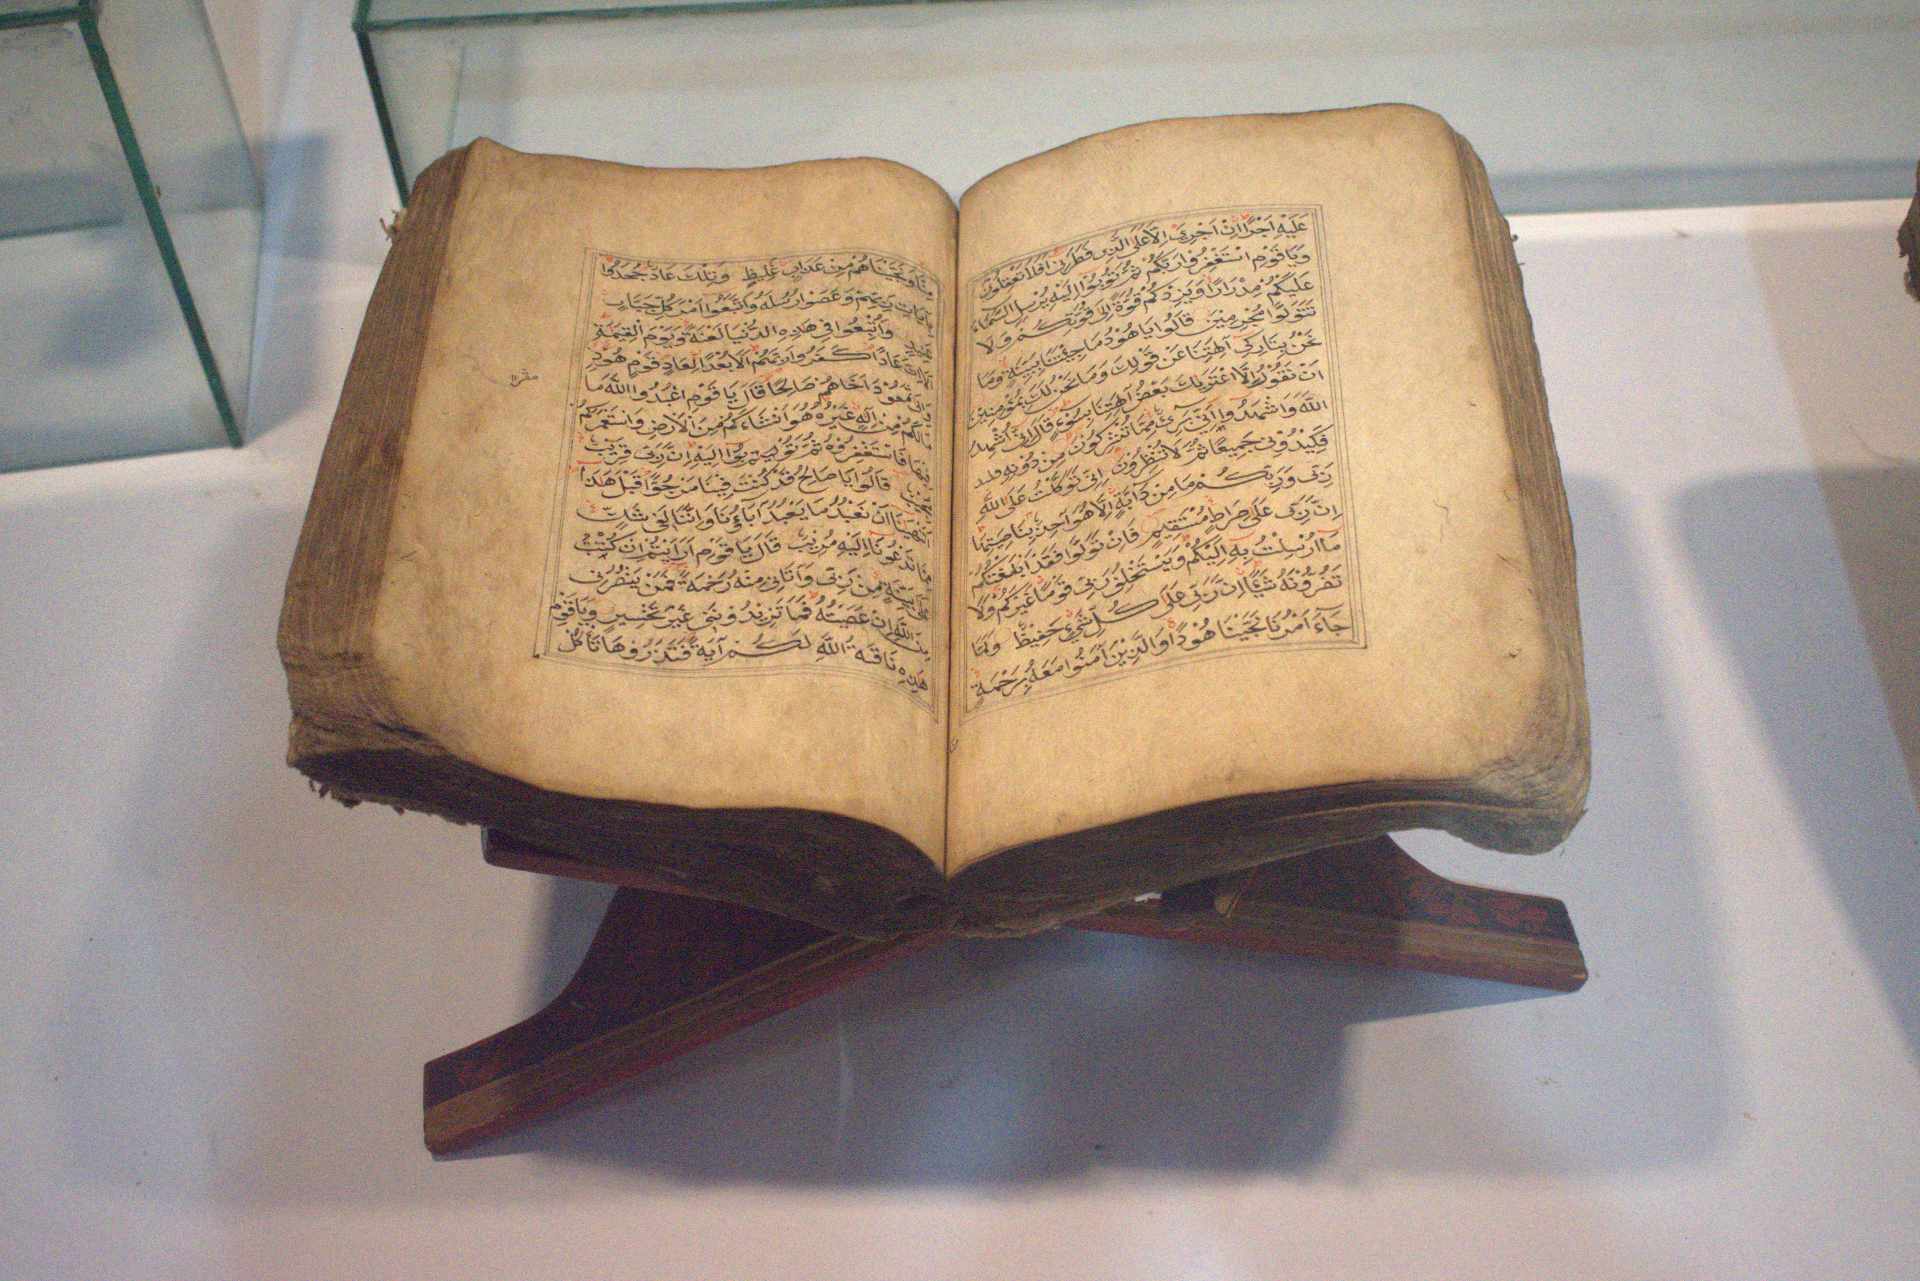 عَلَيْهِ اَجْرًا اِنْ اَجْرِيَ اِلَّا عَلَى الَّذِي فَطَرَنِي اَفَلَا تَعْقِلُونَ
وَيَا قَوْمِ اسْتَغْفِرُوا رَبَّكُمْ ثُمَّ تُوبُوا اِلَيْهِ يُرْسِلِ السَّمَاءَ
عَلَيْكُمْ مِدْرَارًا وَيَزِدْكُمْ قُوَّةً اِلَى قُوَّتِكُمْ وَلَا
تَتَوَلَّوْا مُجْرِمِينَ قَالُوا يَا هُودُ مَا جِئْتَنَا بِبَيِّنَةٍ وَمَا
نَحْنُ بِتَارِكِي آلِهَتِنَا عَنْ قَوْلِكَ وَمَا نَحْنُ لَكَ بِمُؤْمِنِينَ
اِنْ نَقُولُ اِلَّا اعْتَرَيكَ بَعْضُ آلِهَتِنَا بِسُوءٍ قَالَ اِنِّي اُشْهِدُ
اللهَ وَاشْهَدُوا اَنِّي بَرِيءٌ مِمَّا تُشْرِكُونَ مِنْ دُونِهِ
فَكِيدُونِي جَمِيعًا ثُمَّ لَا تُنْظِرُونِ اِنِّي تَوَكَّلْتُ عَلَى اللهِ
رَبِّي وَرَبِّكُمْ مَا مِنْ دَابَّةٍ اِلَّا هُوَ آخِذٌ بِنَاصِيَتِهَا
اِنَّ رَبِّي عَلَى صِرَاطٍ مُسْتَقِيمٍ فَاِنْ تَوَلَّوْا فَقَدْ اَبْلَغْتُكُمْ
مَا اُرْسِلْتُ بِهِ اِلَيْكُمْ وَيَسْتَخْلِفُ رَبِّي قَوْمًا غَيْرَكُمْ وَلَا
تَضُرُّونَهُ شَيْئًا اِنَّ رَبِّي عَلَى كُلِّ شَيْءٍ حَفِيظٌ وَلَمَّا
جَاءَ اَمْرُنَا نَجَّيْنَا هُودًا وَالَّذِينَ آمَنُوا مَعَهُ بِرَحْمَةٍ
مِنَّا وَنَجَّيْنَاهُمْ مِنْ عَذَابٍ غَلِيظٍ وَتِلْكَ عَادٌ جَحَدُوا
بِآيَاتِ رَبِّهِمْ وَعَصَوْا رُسُلَهُ وَاتَّبَعُوا اَمْرَ كُلِّ جَبَّارٍ
عَنِيدٍ وَاُتْبِعُوا فِي هَذِهِ الدُّنْيَا لَعْنَةً وَيَوْمَ الْقِيَمَةِ
اَلَا اِنَّ عَادًا كَفَرُوا رَبَّهُمْ اَلَا بُعْدًا لِعَادٍ قَوْمِ هُودٍ
وَاِلَى ثَمُودَ اَخَاهُمْ صَالِحًا قَالَ يَا قَوْمِ اعْبُدُوا اللهَ مَا
لَكُمْ مِنْ اِلَهٍ غَيْرُهُ هُوَ اَنْشَاَكُمْ مِنَ الْاَرْضِ وَاسْتَعْمَرَكُمْ
فِيهَا فَاسْتَغْفِرُوهُ ثُمَّ تُوبُوا اِلَيْهِ اِنَّ رَبِّي قَرِيبٌ
مُجِيبٌ قَالُوا يَا صَالِحُ قَدْ كُنْتَ فِينَا مَرْجُوًّا قَبْلَ هَذَا
اَتَنْهَانَا اَنْ نَعْبُدَ مَا يَعْبُدُ آبَاؤُنَا وَاِنَّنَا لَفِي شَكٍّ
مِمَّا تَدْعُونَا اِلَيْهِ مُرِيبٍ قَالَ يَا قَوْمِ اَرَاَيْتُمْ اِنْ كُنْتُ
عَلَى بَيِّنَةٍ مِنْ رَبِّي وَآتَانِي مِنْهُ رَحْمَةً فَمَنْ يَنْصُرُنِي
مِنَ اللهِ اِنْ عَصَيْتُهُ فَمَا تَزِيدُونَنِي غَيْرَ تَخْسِيرٍ وَيَا قَوْمِ
هَذِهِ نَاقَةُ اللهِ لَكُمْ آيَةً فَذَرُوهَا تَاْكُلْ